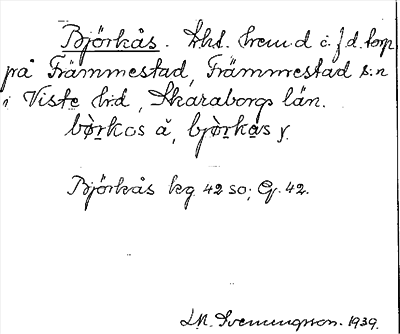 Björkås. Lht. hemd. å f.d. torp
på Främmestad, Främmestad s:n
i Viste hd, Skaraborgs län.
bò̱rkos ä, bjò̱rkås y.
Björkås kg 42 so; Gj. 42.
Svenningsson. 1939.